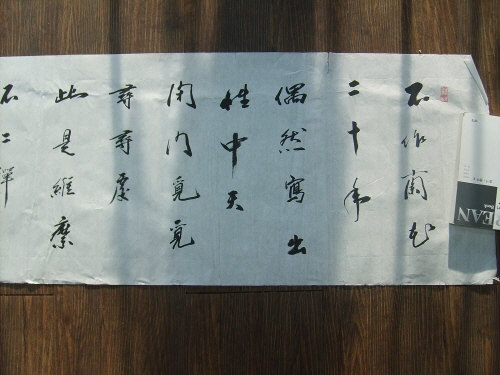 不作蘭花
二十年
偶然寫出
性中天
閉門覓覓
尋尋處
此是維摩
不二禪
EAN